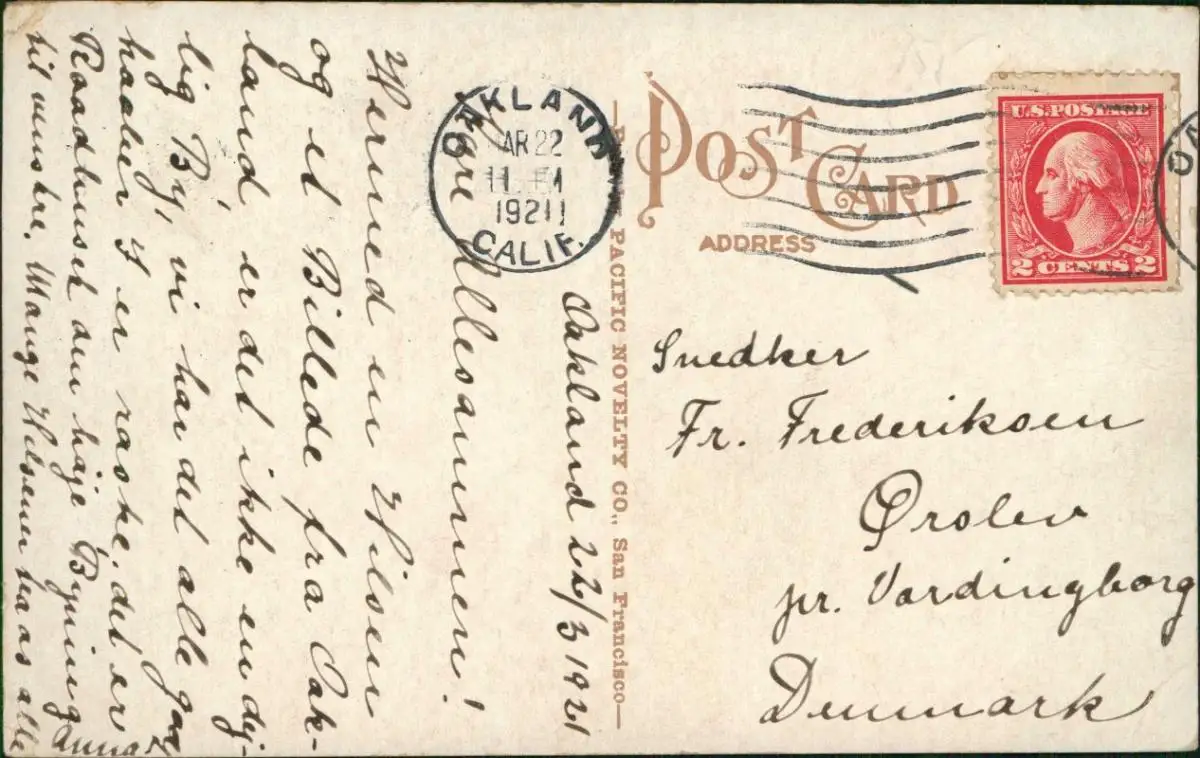 Oakland 22/3 1921
Kære Allesammen!
Hermed en Hilsen
og et Billede fra Oak-
land, er det ikke en dej-
lig By, vi har det alle
haaber I er raske. det er
Raadhuset den høje Bygning
til venstre. Mange Hilsener fra os alle
Anna
POST CARD
ADDRESS
PACIFIC NOVELTY CO., San Francisco
OAKLAND
AR 22
11
1921
CALIF.
U.S. POSTAGE
2 CENTS 2
Snedker
Fr. Frederiksen
Ørslev
pr. Vordingborg
Denmark